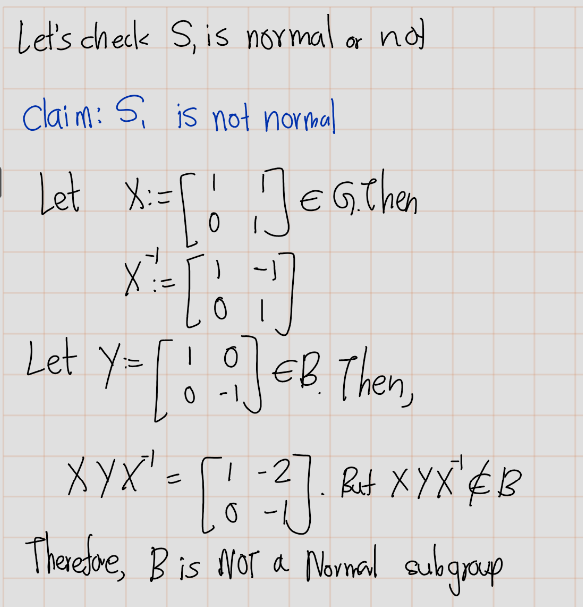 Let's check S₁ is normal or not
Claim: S₁ is not normal
Let X:= [1 1; 0 1] ∈ G. Then
X⁻¹:= [1 -1; 0 1]
Let Y= [1 0; 0 -1] ∈ B. Then,
XYX⁻¹ = [1 -2; 0 -1]. But XYX⁻¹ ∉ B
Therefore, B is NOT a Normal subgroup